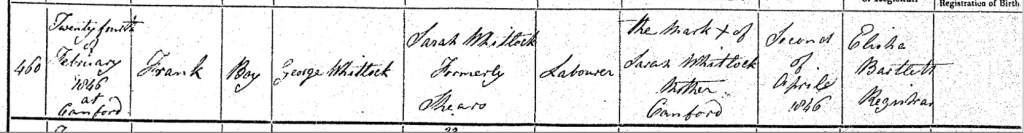 Registration of Birth
460
Twenty fourth
of
February
1846
at
Canford
Frank
Boy
George Whittock
Sarah Whittock
Formerly
Shears
Labourer
The Mark X of
Sarah Whittock
Mother
Canford
Second
of
Aprile
1846
Elisha
Bartlett
Registrar